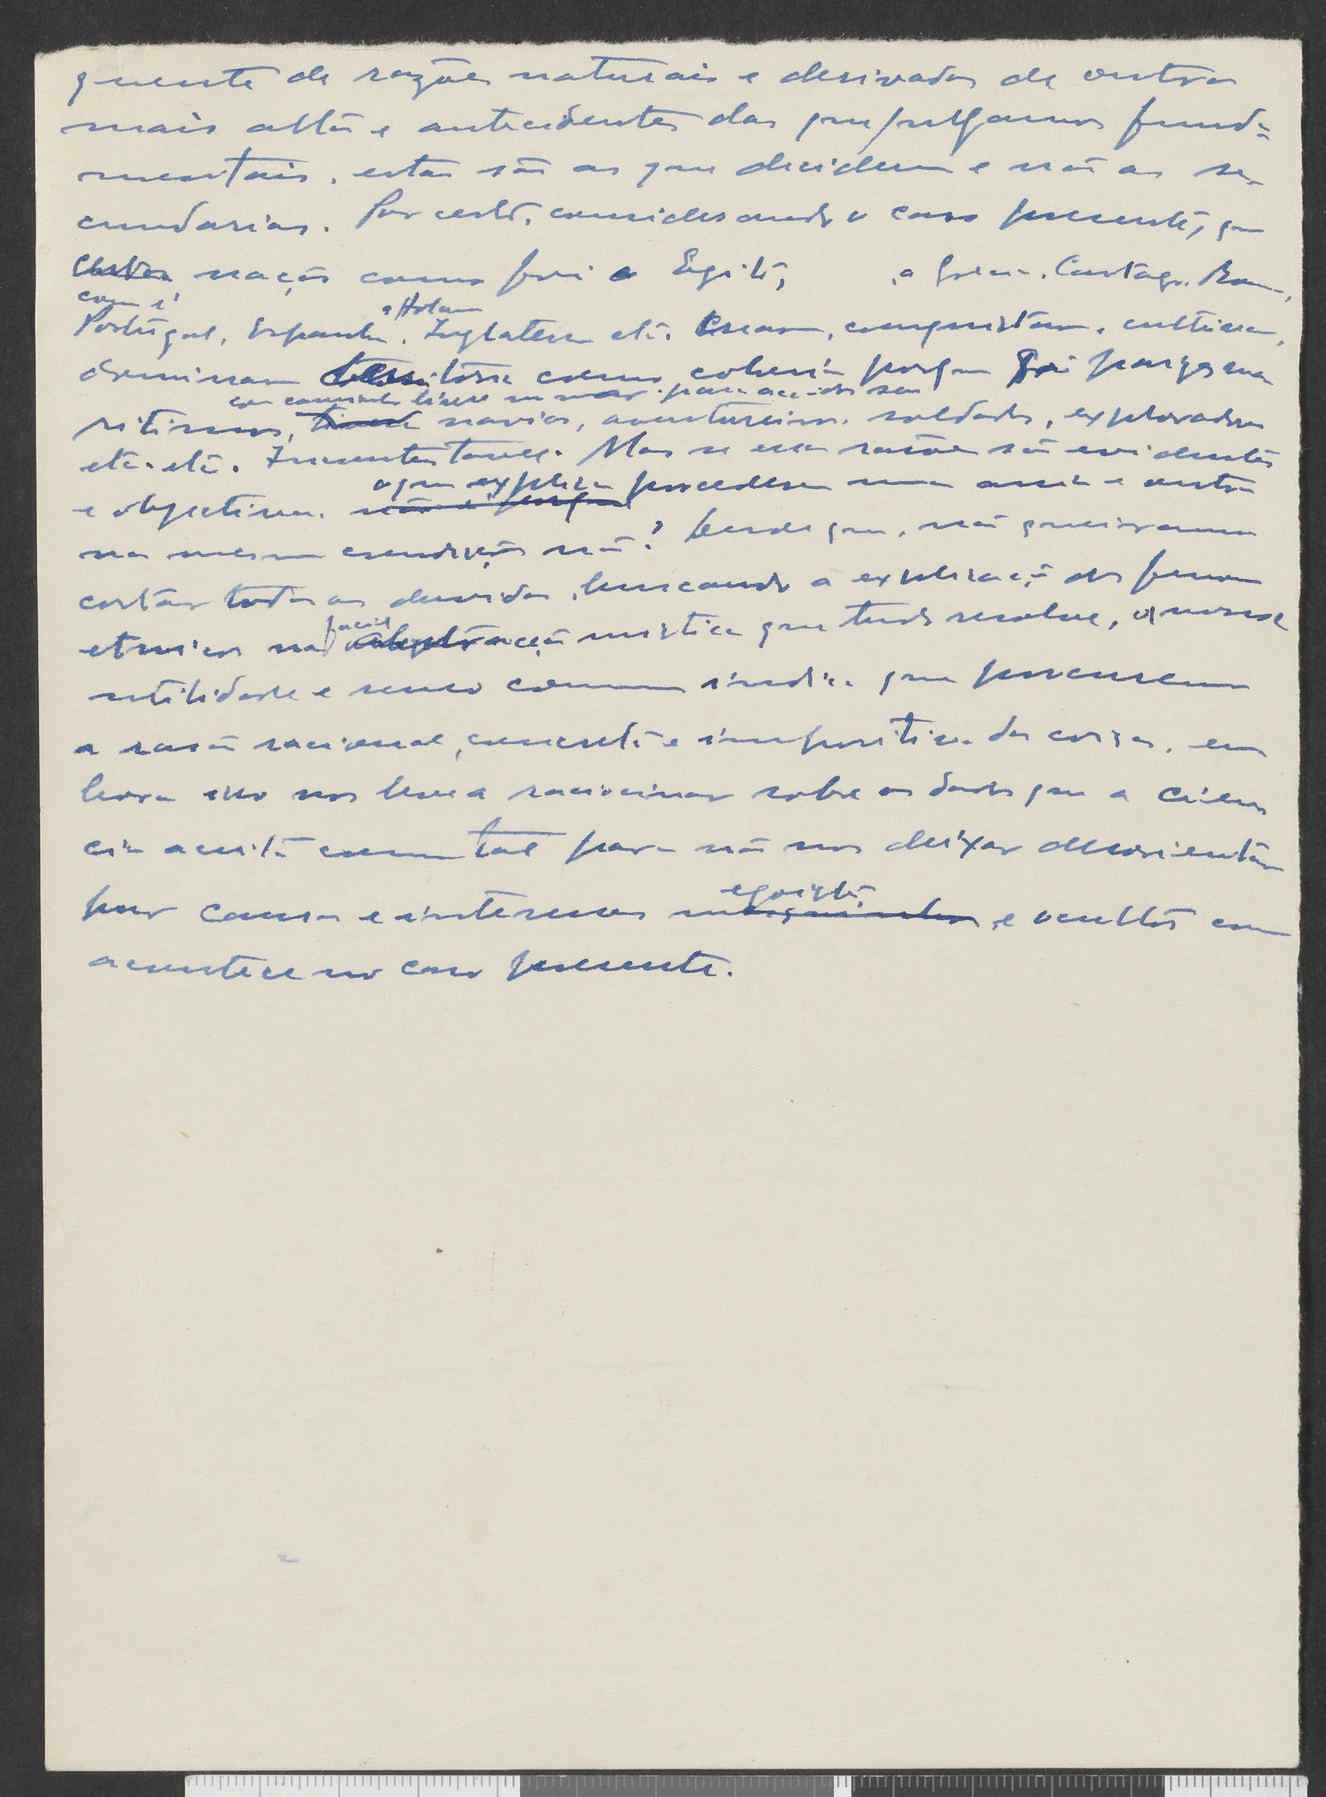 quente de razões naturais e derivadas de outras
mais altas e antecedentes das que julgamos funda=
mentais, estas são as que decidem e não as se-
cundarias. Por certo, considerando o caso presente, que
nação como foi o Egito, a Grecia, Cartago, Roma,
como é
Portugal, Espanha, e Holanda Inglaterra etc. criam, conquistam, cultivam,
dominam como porque foi
com caminho livre no mar para
ritimos, navios, aventureiros, soldados, exploradores
etc. etc. Mas se essas razões são evidentes
e objectivas, o que explica procederem uns assim e outros
na mesma condição não? Desde que, não queiramos
cortar todas as duvidas, buscando a explicação dos fenom
etnicos na facil abstração mistica que tudo resolve, a nossa
utilidade e senso comum indica que procuremos
a razão racional, concreta e impositiva das coisas, em
bora isso nos leve a raciocinar sobre os dados que a cien
cia aceita como tal para não nos deixar desorientar
por causas e interesses egoistas e ocultos como
acontece no caso presente.